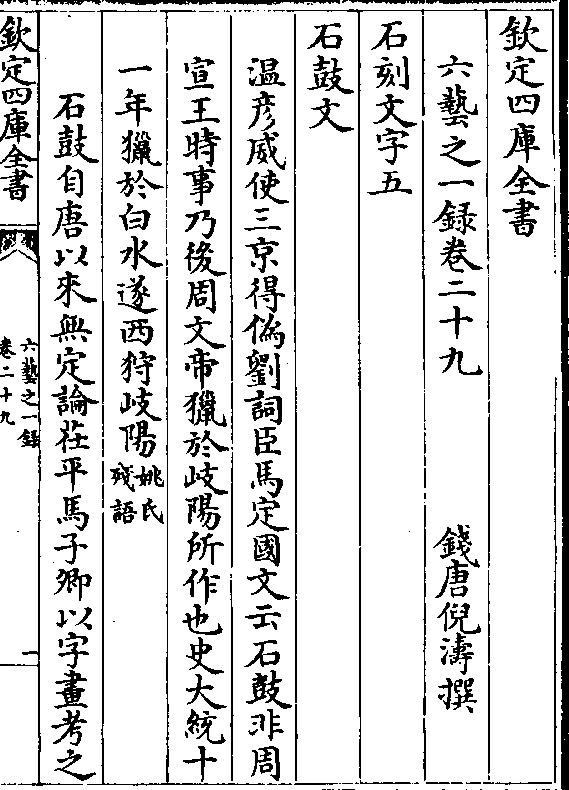 欽定四庫全書
六藝之一録卷二十九
錢唐倪濤撰
石刻文字五
石鼓文
溫彦威使三京得偽劉詞臣馬定國文云石鼓非周
宣王時事乃後周文帝獵於岐陽所作也史大統十
一年獵於白水遂西狩岐陽姚氏
殘語
石鼓自唐以來無定論茌平馬子卿以字畫考之
欽定四庫全書
六藝之一録
卷二十九
一